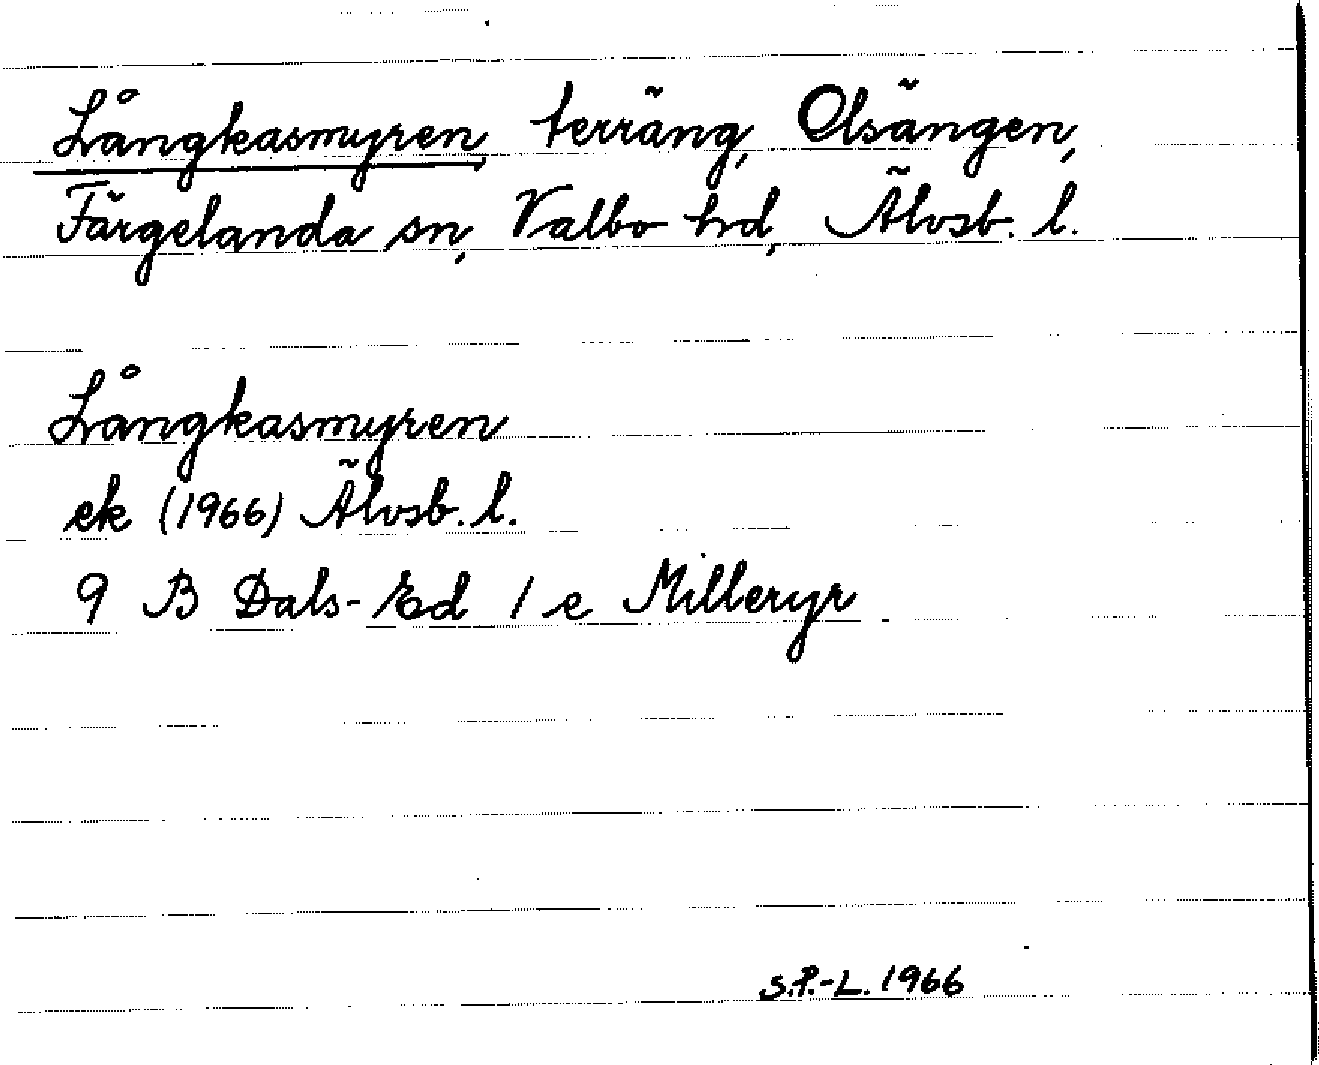 Långkasmyren terräng, Olsängen,
Färgelanda sn, Valbo hd, Älvsb. l.
Långkasmyren
ek (1966) Älvsb. l.
9 B Dals-Ed 1 e Milleryr
S.P.-L. 1966